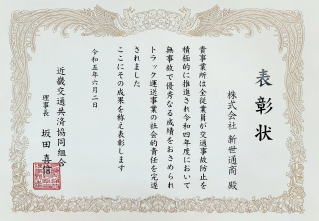 表彰状
株式会社 新世通商 殿
貴事業所は全従業員が交通事故防止を
積極的に推進され令和四年度において
無事故で優秀なる成績をおさめられ
トラック運送事業の社会的責任を完遂
されました
ここにその成果を称え表彰します
令和五年六月二日
近畿交通共済協同組合
理事長 坂田 喜信